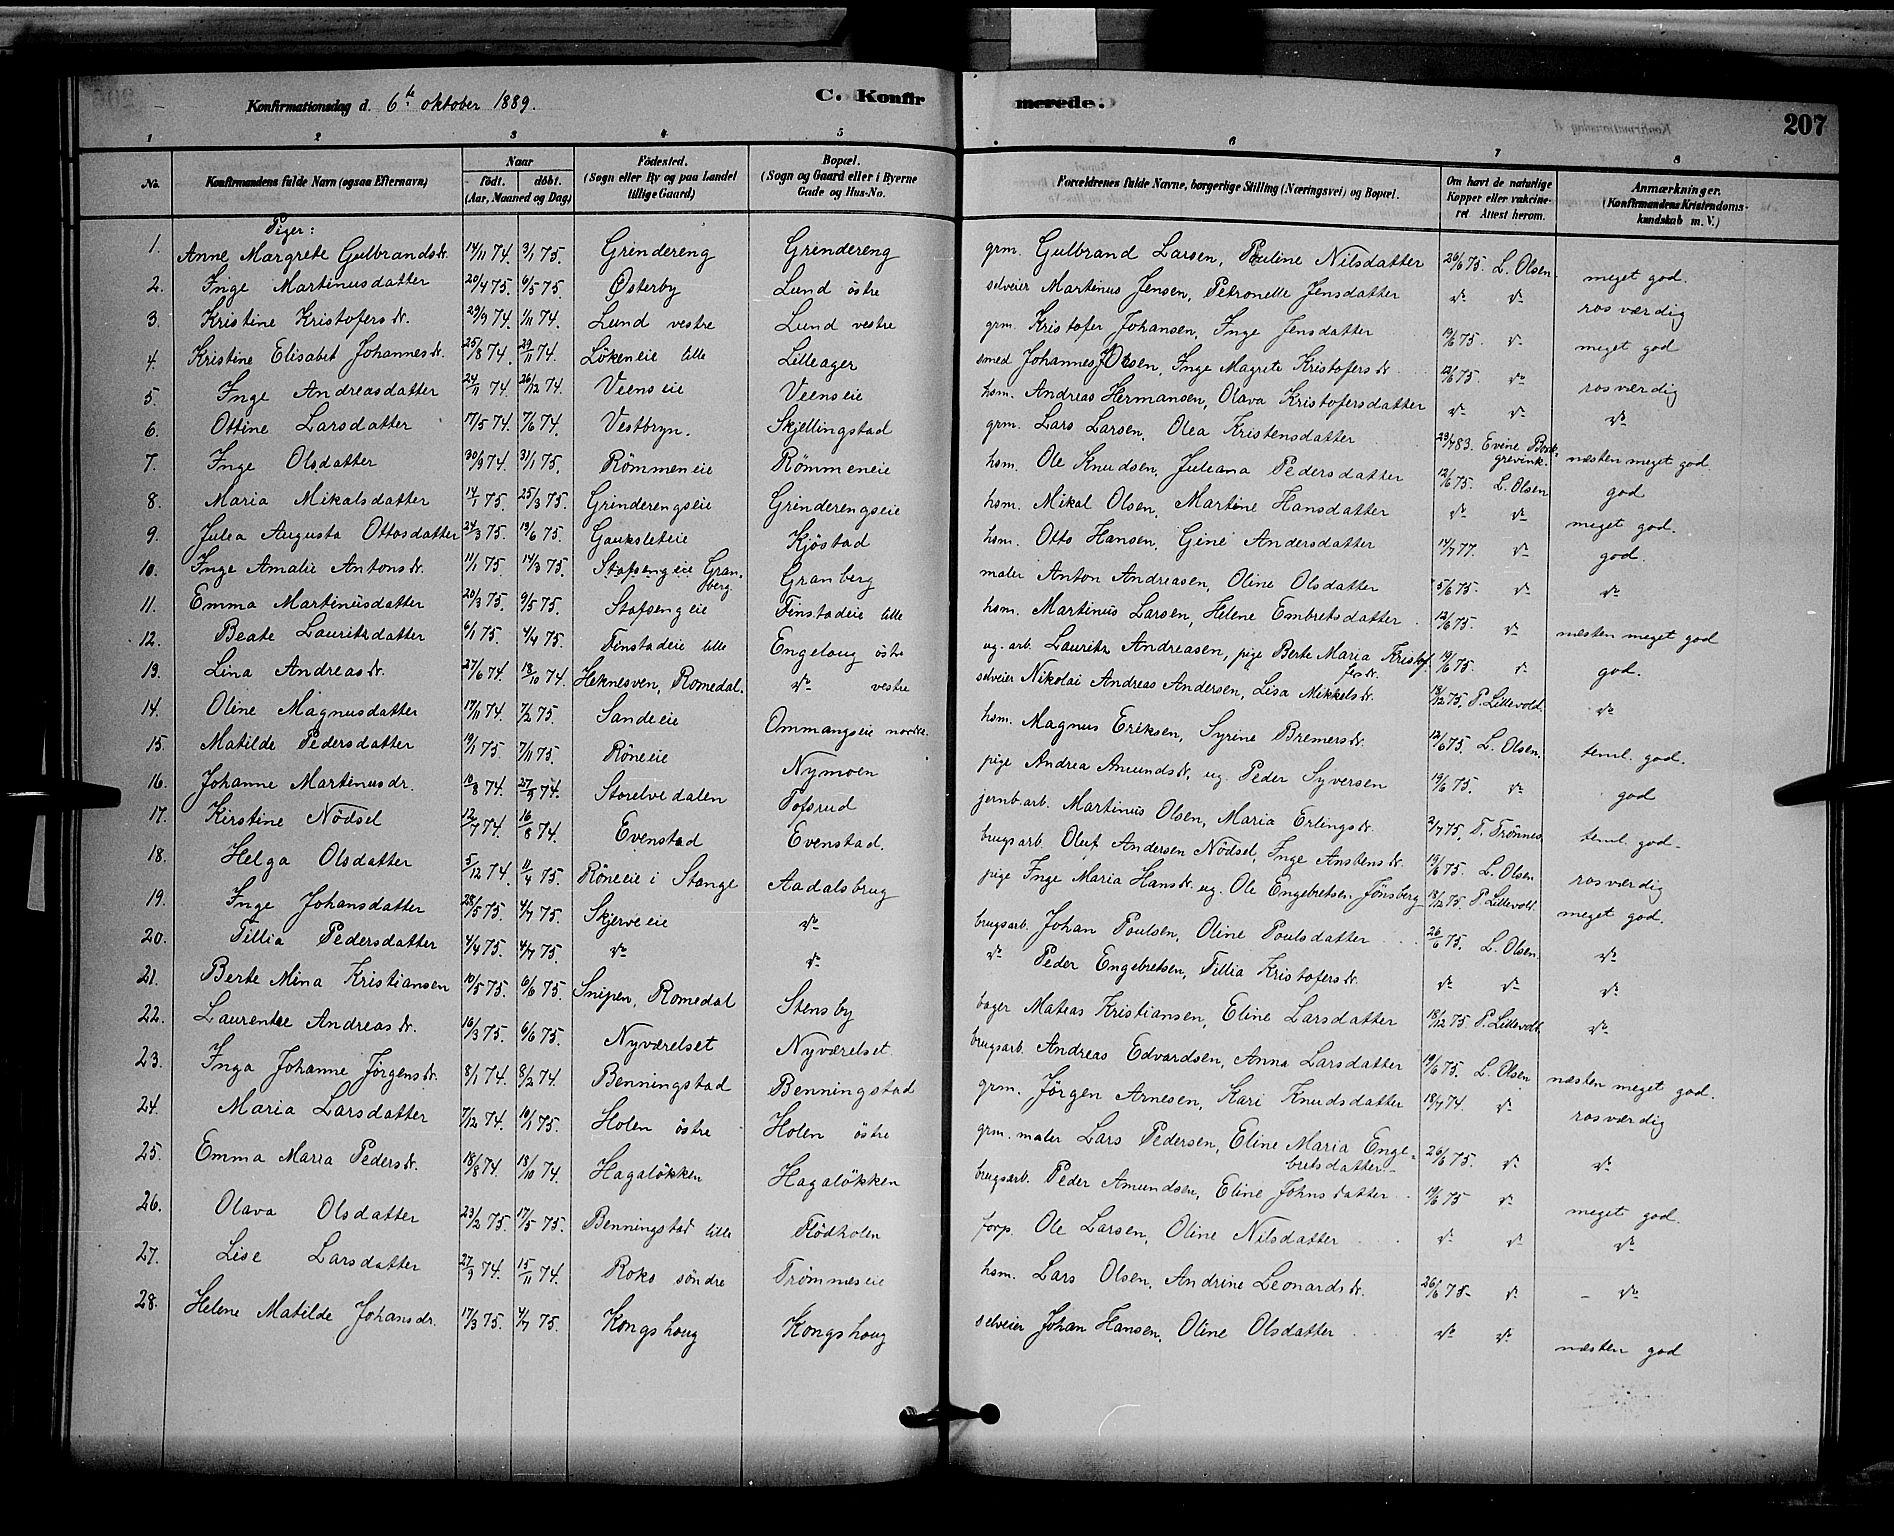 Konfirmationsdag d. 6te oktober 1889. C. Konfirmerede. 207
1 2 3 4 5 6 7 8
No. Konfirmandens fulde Navn (ogsaa Efternavn) Naar født. døbt. (Aar, Maaned og Dag) Fødested. (Sogn eller By og paa Landet tillige Gaard) Bopæl. (Sogn og Gaard eller i Byerne Gade og Hus-No. Forældrenes fulde Navne, borgerlige Stilling (Næringsvei) og Bopæl. Om havt de naturlige Kopper eller vakcineret. Attest herom. Anmærkninger. (Konfirmandens Kristendomskundskab m. V.)
Piger:
1. Anne Margrete Gulbrandsdr. 14/11 74. 3/1 75. Grindereng Grindereng grm. Gulbrand Larsen, Pauline Nilsdatter 26/6 75. L. Olsen meget god.
2. Inge Martinusdatter 20/4 75. 6/5 75. Østerby Lund östre selveier Martinus Jensen, Petronelle Jensdatter do do rosværdig
3. Kristine Kristofersdr. 29/9 74. 1/11 74. Lund vestre Lund vestre grm. Kristofer Johansen, Inge Jensdatter 19/6 75. do meget god
4. Kristine Elisabet Johannesdr. 25/8 74. 29/11 74. Lökeneie lille Lilleager smed Johannes Olsen, Inge Magrete Kristofersdr. 12/6 75. do rosværdig
5. Inge Andreasdatter 24/11 74. 26/12 74. Veenseie Veenseie hsm. Andreas Hermansen, Olava Kristofersdatter do do do
6. Ottine Larsdatter 17/5 74. 7/6 74. Vestbryn. Skjellingstad grm. Lars Larsen, Olea Kristensdatter 23/7 83. Evine Borchgrevink. næsten meget god.
7. Inge Olsdatter 30/9 74. 31/1 75. Rømmeneie Rømmeneie hsm. Ole Knudsen, Juleana Pedersdatter 12/6 75. L. Olsen god
8. Maria Mikalsdatter 14/1 75. 25/3 75. Grinderengseie Grinderengseie hsm. Mikal Olsen, Martine Hansdatter do do meget god.
9. Julea Augusta Ottosdatter 24/3 75. 13/6 75. Gauksleteie Kjöstad hsm. Otto Hansen, Gine Andersdatter 14/7 77. do god.
10. Inge Amalie Antonsdr. 11/1 75. 14/3 75. Stofsengeie Granberg Granberg maler Anton Andreasen, Oline Olsdatter 5/6 75. do do
11. Emma Martinusdatter 20/3 75. 9/5 75. Stofsengeie Finstadeie lille hsm. Martinus Larsen, Helene Embretsdatter 12/6 75. do næsten meget god
12. Beate Lauritzdatter 6/1 75. 4/4 75. Finstadeie lille Engeloug östre ug. arb. Lauritz Andreasen, pige Berte Maria Kristofersdr. 19/6 75. do god.
13. Lina Andreasdr. 27/6 74. 18/10 74. Heknesven, Romedal. do vestre selveier Nikolai Andreas Andersen, Lisa Mikkelsdr. 18/12 75. P. Lillevold. do
14. Oline Magnusdatter 17/11 74. 7/2 75. Sandeeie Ommangseie nordre. hsm. Magnus Eriksen, Syrine Bremersdr. 12/6 75. L. Olsen. teml. god.
15. Matilde Pedersdatter 19/1 75. 7/11 75. Röneeie Nymoen pige Andrea Amundsdr, ug. Peder Syversen 19/6 75. do god
16. Johanne Martinusdr. 10/8 74. 27/9 74. Storelvedalen Tofsrud jernb.arb. Martinus Olsen, Maria Erlingsdr. 2/7 75, T. Trönnes teml. god.
17. Kirstine Nödsel 12/7 74. 16/8 74. Evenstad Evenstad. brugsarb. Oluf Andersen Nödsel, Inge Anstensdr. 19/6 75. L. Olsen rosværdig
18. Helga Olsdatter 5/12 74. 11/4 75. Röneeie i Stange Aadalsbrug pige Inge Maria Hansdr. ug. Ole Engebretsen Jönsberg 18/12 75. P Lillevold. meget god.
19. Inge Johansdatter 28/5 75. 4/7 75. Skjerveeie do brugsarb. Johan Poulsen, Oline Poulsdatter 26/6 75. L. Olsen. do
20. Tillia Pedersdatter 4/4 75. 4/7 75. do do do Peder Engebretsen, Tillia Kristofersdr. do do do
21. Berte Mina Kristiansen 10/5 75. 6/6 75. Snipen, Romedal Stensby bager Matias Kristiansen, Eline Larsdatter 18/12 75. P. Lillevold. do
22. Laurentze Andreasdr. 16/3 75. 6/6 75. Nyværelset Nyværelset. brugsarb. Andreas Edvardsen, Anna Larsdatter 19/6 75. L. Olsen næsten meget god.
23. Inga Johanne Jörgensdr. 8/1 74. 8/2 74. Benningstad Benningstad grm. Jørgen Arnesen, Kari Knudsdatter 18/7 74. do rosværdig
24. Maria Larsdatter 7/12 74. 10/1 75. Holen östre Holen östre grm. maler Lars Pedersen, Eline Maria Engebretsdatter 26/6 75. do do
25. Emma Maria Pedersdr. 18/8 74. 18/10 74. Hagalökken Hagalökken brugsarb. Peder Amundsen, Eline Johnsdatter 19/6 75 do meget god.
26. Olava Olsdatter 23/2 75. 17/5 75. Benningstad lille Flödholen forp. Ole Larsen, Oline Nilsdatter do do do
27. Lise Larsdatter 27/9 74. 15/11 74. Roko söndre Trømneseie hsm. Lars Olsen, Andrine Leonardsdr. 26/6 75- do - do
28. Helene Matilde Johansdr. 17/3 75. 4/7 75. Kongshoug Kongshoug selveier Johan Hansen, Oline Olsdatter do do næsten god